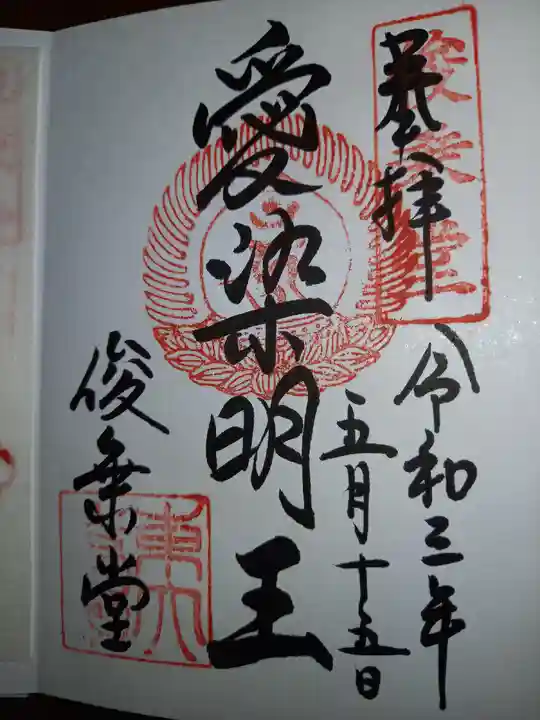 奉拝
令和三年
五月十五日
愛染明王
俊乗堂